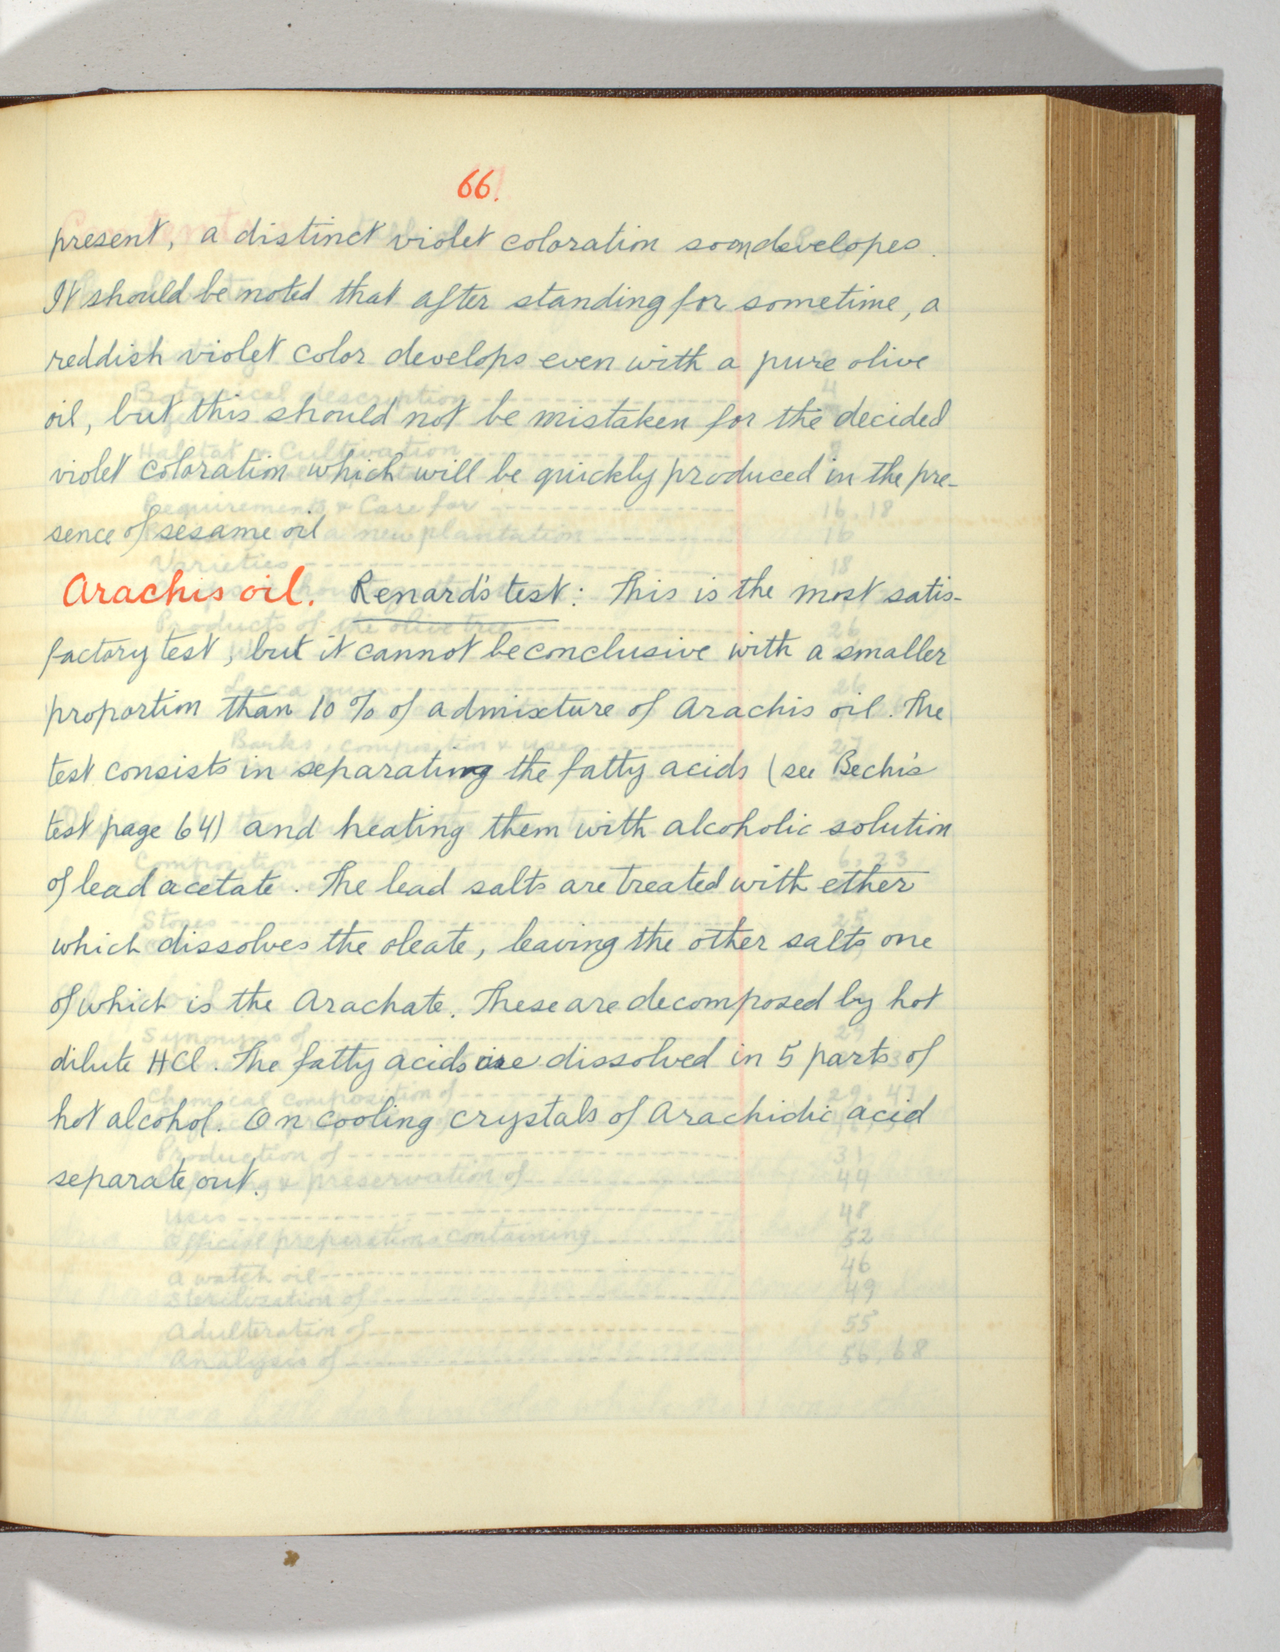 66.
present, a distinct violet coloration soon developes.
It should be noted that after standing for sometime, a
reddish violet color develops even with a pure olive
oil, but this should not be mistaken for the decided
violet coloration which will be quickly produced in the pre-
sence of sesame oil
Arachis oil. Renard's test: This is the most satis-
factory test, but it cannot be conclusive with a smaller
proportion than 10 % of admixture of Arachis oil. The
test consists in separating the fatty acids (see Bechi's
test page 64) and heating them with alcoholic solution
of lead acetate. The lead salts are treated with ether
which dissolves the oleate, leaving the other salts one
of which is the Arachate. These are decomposed by hot
dilute HCl. The fatty acids are dissolved in 5 parts of
hot alcohol. On cooling crystals of Arachidic acid
separate out.